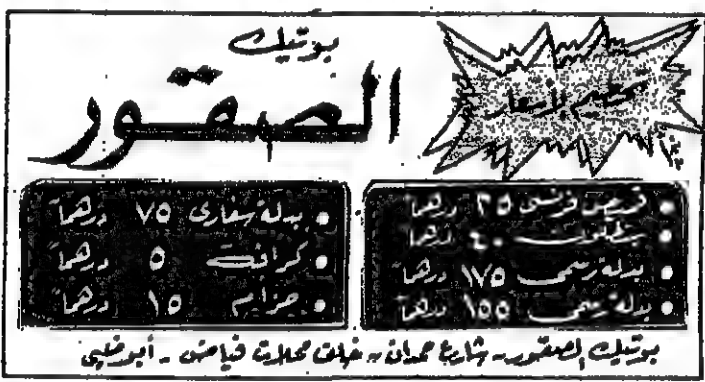 بوتيك
الصقور
تحطيم الأسعار
• قميص فرنسي ٢٥ درهما
• بنطلون ٤٠ درهما
• بدلة رسمي ١٧٥ درهما
• بدلة رسمي ١٥٥ درهما
• بدلة سفاري ٧٥ درهماً
• كرافت ٥ درهماً
• حزام ١٥ درهماً
بوتيك الصقور - شارع حمدان - خلف محلات فياض - أبوظبي